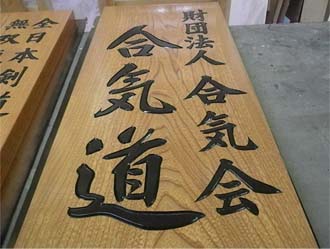 財団法人 合気会
合気道
全日本剣道